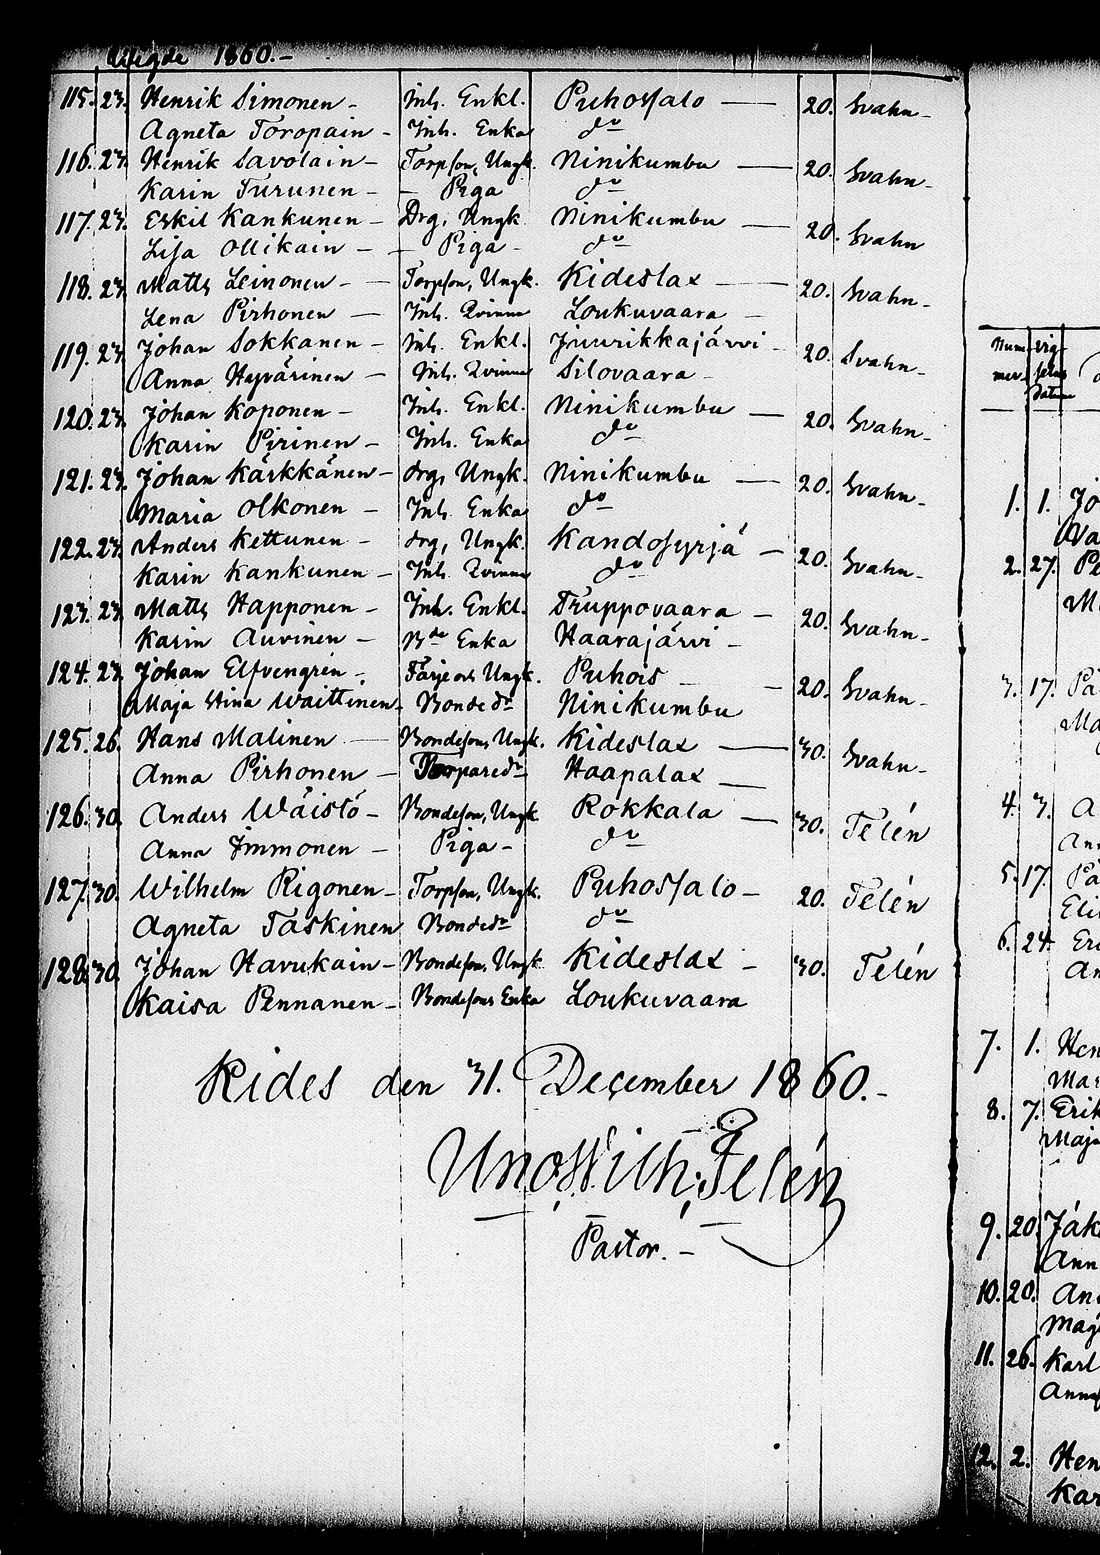 Wigde 1860.-
115. 23. Henrik Simonen - Inh. Enkl. Puhossalo — 20. Svahn -
Agneta Toropain - Inh. Enka do
116. 23. Henrik Savolain - Torpson, Ungk. Ninikumbu — 20. Svahn -
Karin Turunen - - Piga do
117. 23. Eskil Kankunen - Drg, Ungk Ninikumbu — 20. Svahn
Lisa Ollikain - - Piga - do
118. 23. Matts Leinonen - Torpson, Ungk. Kideslax — 20. Svahn -
Lena Pirhonen - Inh. Qvinna Loukuvaara -
119. 23. Johan Sokkanen - Inh. Enkl. Juurikkajärvi - 20. Svahn -
Anna Hyvärinen - Inh. Qvinna Silovaara -
120. 23. Johan Koponen - Inh. Enkl. Ninikumbu — 20. Svahn -
Karin Pirinen - Inh. Enka do
121. 23. Johan Kärkkänen - drg, Ungk. Ninikumbu — 20. Svahn -
Maria Olkonen - Inh. Enka do
122. 23. Anders Kettunen - drg, Ungk. Kandosyrjä - 20. Svahn -
Karin Kankunen - Inh. Qvinna do
123. 23. Matts Happonen - Inh. Enkl. Truppovaara — 20. Svahn -
Karin Auvinen - Bde Enka Haarajärvi -
124. 23. Johan Elfvengren - Färjeors Ungk. Puhois - 20. Svahn -
Maja Stina Waittinen Bondedr Ninikumbu
125. 26. Hans Malinen - Bondeson, Ungk. Kideslax — 30. Svahn -
Anna Pirhonen - Torparedr Haapalax —
126. 30. Anders Wäistö - Bondeson, Ungk Rokkala — 30. Telén
Anna Immonen - Piga - do
127. 30. Wilhelm Rigonen - Torpson, Ungk. Puhossalo - 20. Telén
Agneta Taskinen Bondedr do
128. 30. Johan Havukain - Bondeson, Ungk Kideslax - 30. Telén
Kaisa Pennanen - Bondesons Enka Loukuvaara
Kides den 31. December 1860.-
Uno Wilh. Telén
Pastor. -
Num-
mer
Vig-
sels
datum
1. 1. Jo
2. 27. Pe
3. 17. På
Ma
4. 3. A
Ann
5. 17. På
Eli
6. 24. Eri
An
7. 1. Hen
Mar
8. 7. Erik
Maja
9. 20. Jak
Ann
10. 20. And
Mag
11. 26. Karl
Anna
12. 2. Hen
Kar